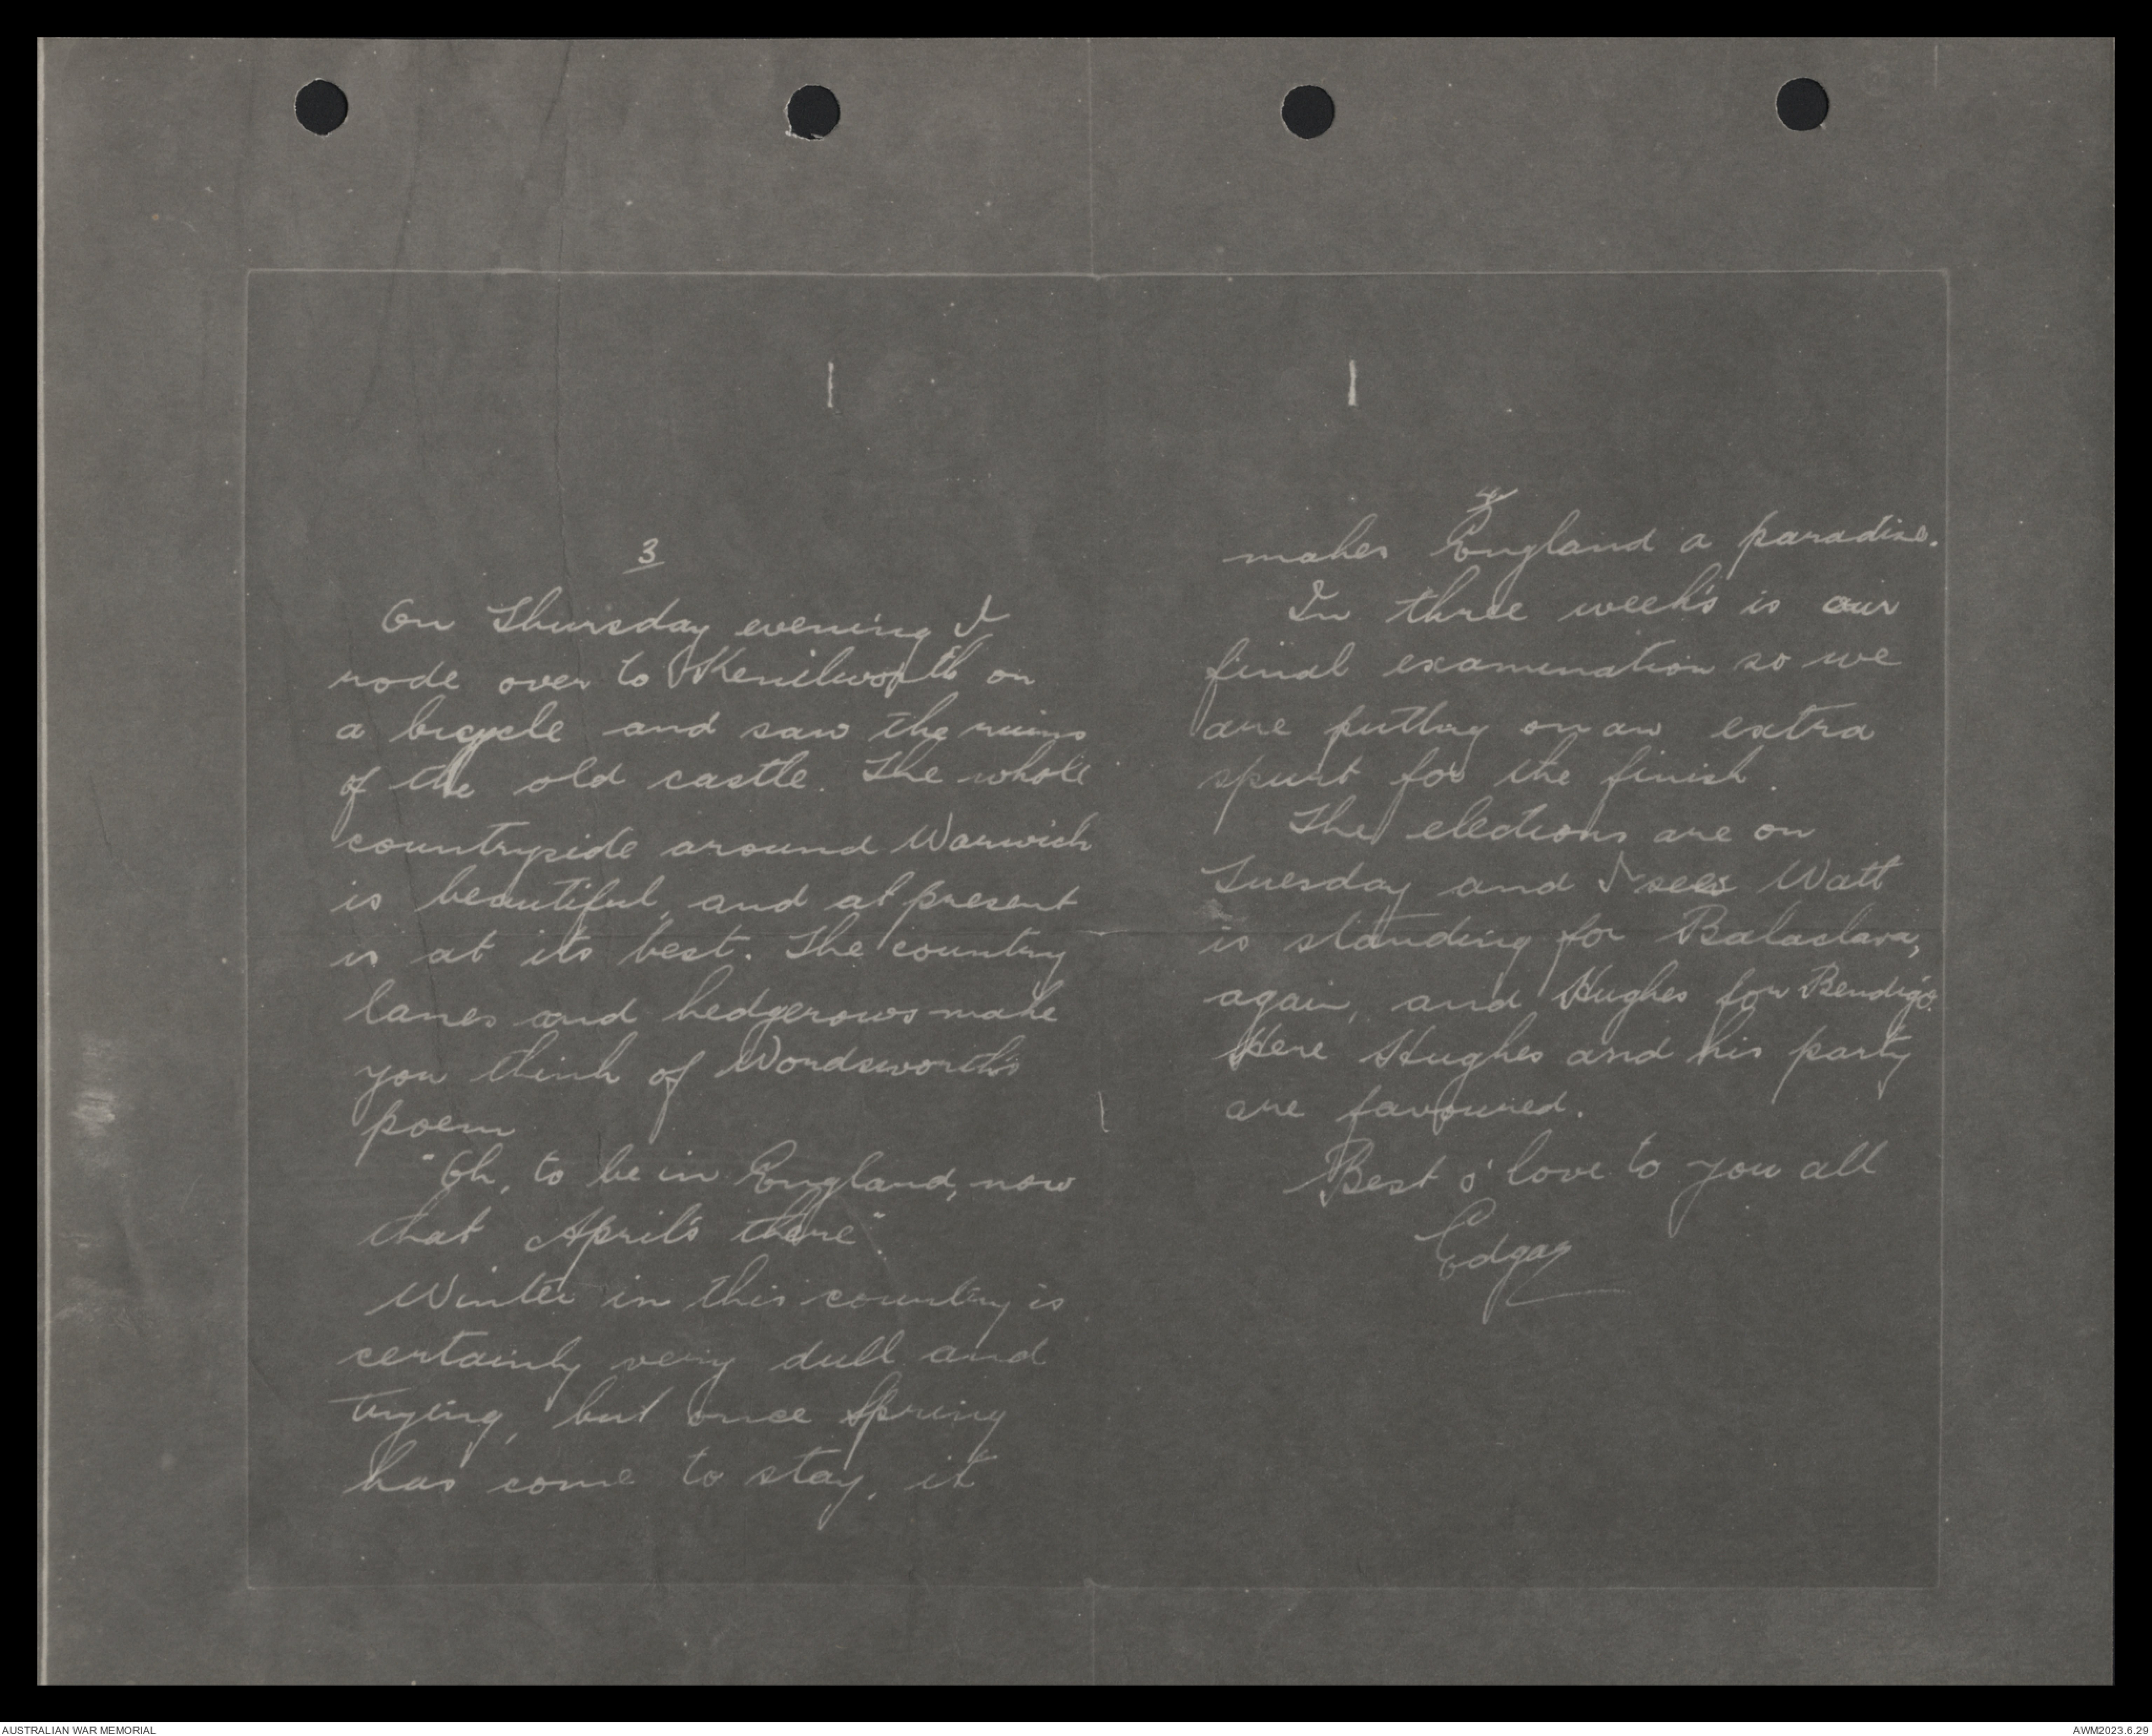 3
On Thursday evening I
rode over to Kenilworth on
a bicycle and saw the ruins
of the old castle. The whole
countryside around Warwick
is beautiful, and at present
is at its best. The country
lanes and hedgerows make
you think of Wordsworth's
poem
"Oh, to be in England, now
that April's there".
Winter in this country is
certainly very dull and
trying, but once Spring
has come to stay, it
makes England a paradise.
In three week's is our
final examination so we
are putting on an extra
spurt for the finish.
The elections are on
Tuesday and I see Watt
is standing for Balaclava,
again, and Hughes for Bendigo.
Here Hughes and his party
are favoured.
Best o' love to you all
Edgar
AUSTRALIAN WAR MEMORIAL
AWM2023.6.29